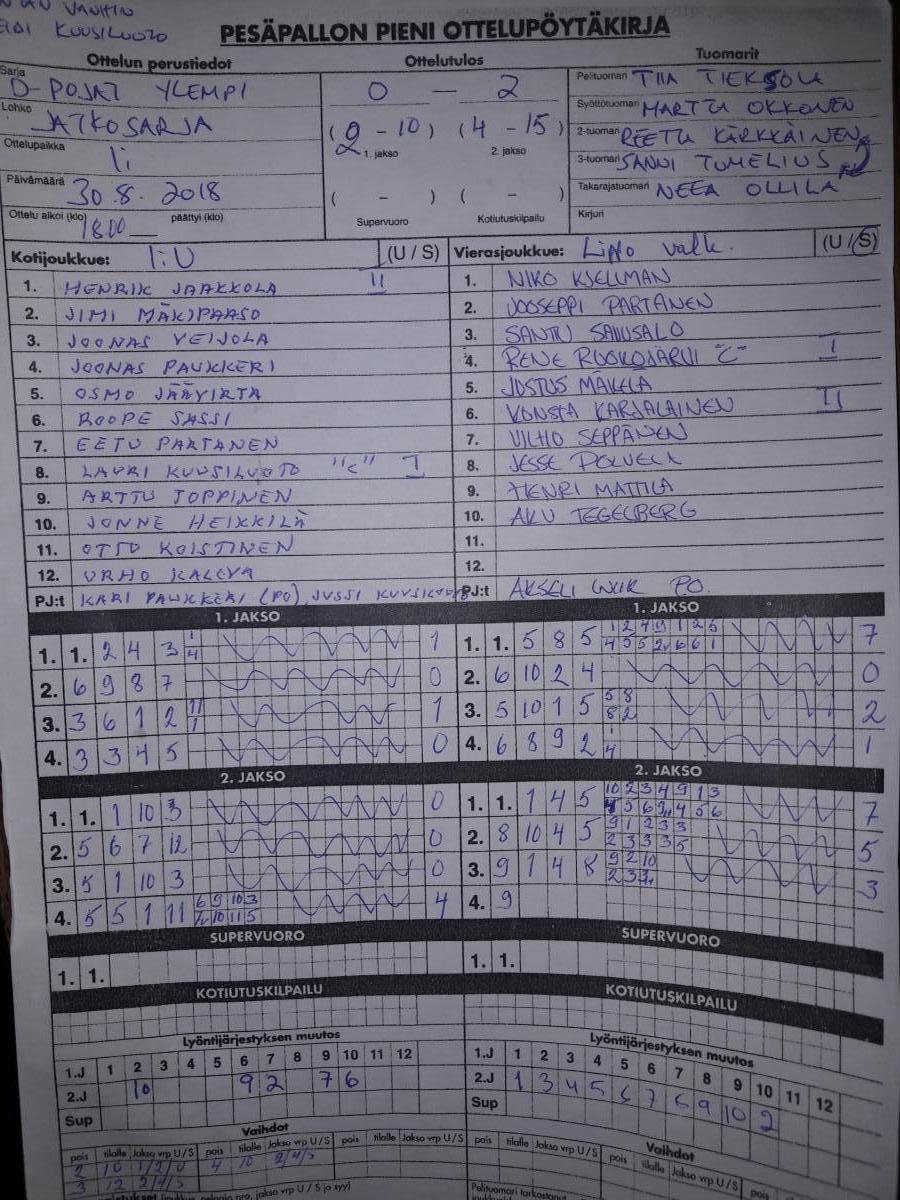 KUUSILUOTO
PESÄPALLON PIENI OTTELUPÖYTÄKIRJA
Ottelun perustiedot Ottelutulos Tuomarit
Sarja D-POJAT YLEMPI
Lohko JATKOSARJA
Ottelupaikka Ii
Päivämäärä 30.8.2018
Ottelu alkoi (klo) 1800 päättyi (klo)
0 — 2
(2 - 10) (4 - 15)
1. jakso 2. jakso
( - ) ( - )
Supervuoro Kotiutuskilpailu
Pelituomari TIIA TIEKSOLA
Syöttötuomari MARTTU OKKONEN
2-tuomari REETU KÄRKKÄINEN
3-tuomari SANNI TUMELIUS
Takarajatuomari NEEA OLLILA
Kirjuri
Kotijoukkue: Ii:U (U / S)
1. HENRIK JAAKKOLA II
2. JIMI MÄKIPAASO
3. JOONAS VEIJOLA
4. JOONAS PAUKKERI
5. OSMO JÄÄVIRTA
6. ROOPE SASSI
7. EETU PARTANEN
8. LAURI KUUSILUOTO "C" I
9. ARTTU TOPPINEN
10. JONNE HEIKKILÄ
11. OTTO KOISTINEN
12. URHO KALEVA
PJ:t KARI PAUKKERI (PO), JUSSI KUUSILUOTO
Vierasjoukkue: Lippo valk. (U / S)
1. NIKO KJELLMAN
2. JOOSEPPI PARTANEN
3. SANTTU SAUSALO
4. RENE RUOKOJÄRVI "C" I
5. JUSTUS MÄKELÄ
6. KONSTA KARJALAINEN II
7. VILHO SEPPÄNEN
8. JESSE POLVELA
9. HENRI MATTILA
10. AKU TEGELBERG
11.
12.
PJ:t AKSELI PO.
1. JAKSO
1. 1. 2 4 3 1
4
2. 6 9 8 7 0
3. 3 6 1 2 1
4. 3 3 4 5 0
1. JAKSO
1. 1. 5 8 5 7
2. 6 10 2 4 0
3. 5 10 1 5 5 8 2
8 2
4. 6 8 9 2 1
4
2. JAKSO
1. 1. 1 10 3 0
2. 5 6 7 12 0
3. 5 1 10 3 0
4. 5 5 1 11 6 9 10 3 4
10 11 5
2. JAKSO
1. 1. 1 4 5 10 2 3 4 9 1 3 7
2. 8 10 4 5 9 1 2 3 3 5
2 3 3 3 5
3. 9 1 4 8 9 2 10 3
4. 9
SUPERVUORO SUPERVUORO
1. 1. 1. 1.
KOTIUTUSKILPAILU KOTIUTUSKILPAILU
Lyöntijärjestyksen muutos
1.J 1 2 3 4 5 6 7 8 9 10 11 12
2.J 10 9 2 7 6
Sup
Lyöntijärjestyksen muutos
1.J 1 2 3 4 5 6 7 8 9 10 11 12
2.J 1 3 4 5 6 7 8 9 10 2
Sup
Vaihdot
pois tilalle Jakso vrp U / S pois tilalle Jakso vrp U / S pois tilalle Jakso vrp U / S
2 10 1/2/U 4 10 2/4/S
3 12 2/4/S
Vaihdot
pois tilalle Jakso vrp U / S pois tilalle Jakso vrp U / S pois